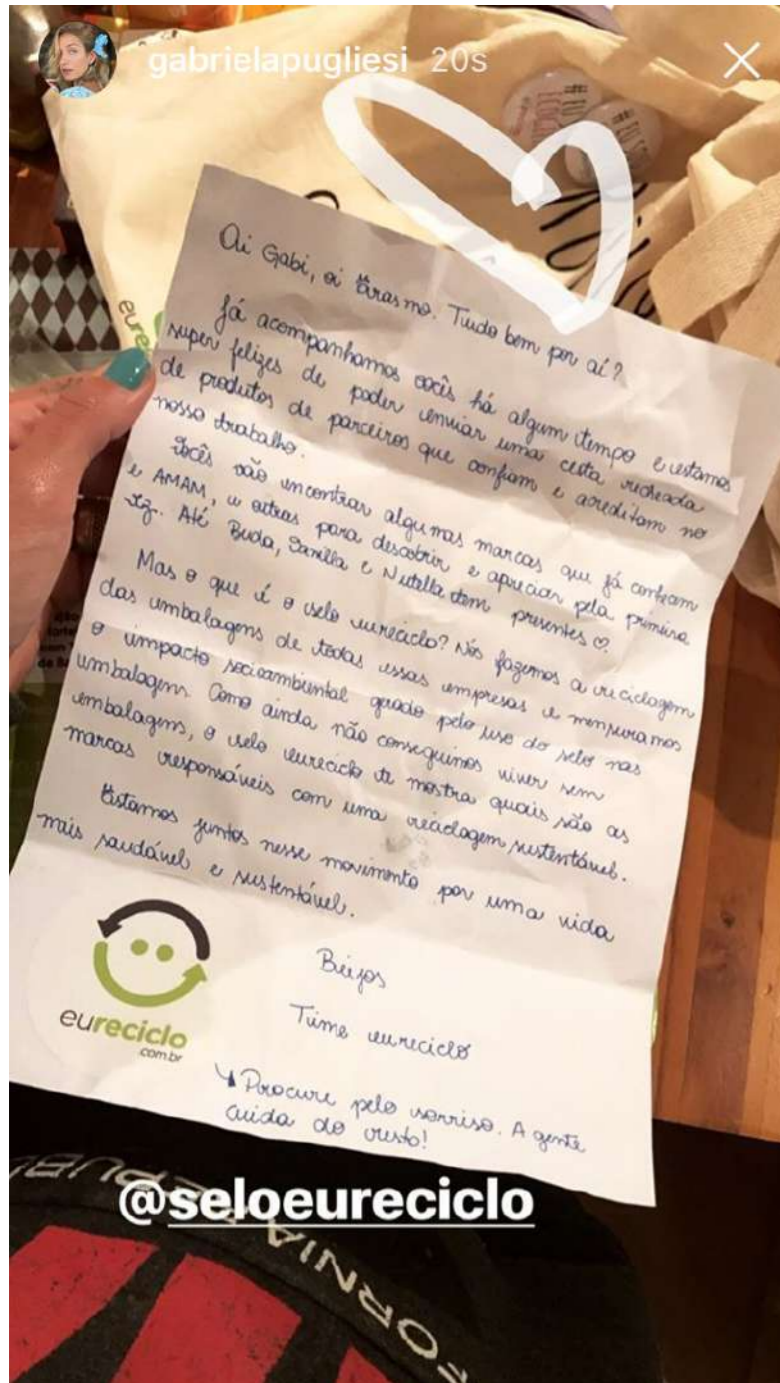 gabrielapugliesi 20s
eure
Oi Gabi, oi Erasmo. Tudo bem por aí?
Já acompanhamos vocês há algum tempo e estamos
super felizes de poder enviar uma cesta recheada
de produtos de parceiros que confiam e acreditam no
nosso trabalho.
Vocês vão encontrar algumas marcas que já conhecem
e AMAM, e outras para descobrir e apreciar pela primeira
vez. Até Buda, Sanilla e Nutella tem presentes ♡.
Mas o que é o selo eureciclo? Nós fazemos a reciclagem
das embalagens de todas essas empresas e mensuramos
o impacto socioambiental gerado pelo uso do selo nas
embalagens. Como ainda não conseguimos viver sem
embalagens, o selo eureciclo te mostra quais são as
marcas responsáveis com uma reciclagem sustentável.
Estamos juntos nesse movimento por uma vida
mais saudável e sustentável.
Beijos
Time eureciclo
↳ Procure pelo sorriso. A gente
cuida do resto!
eureciclo
.com.br
@seloeureciclo
FORNIA REPUBL